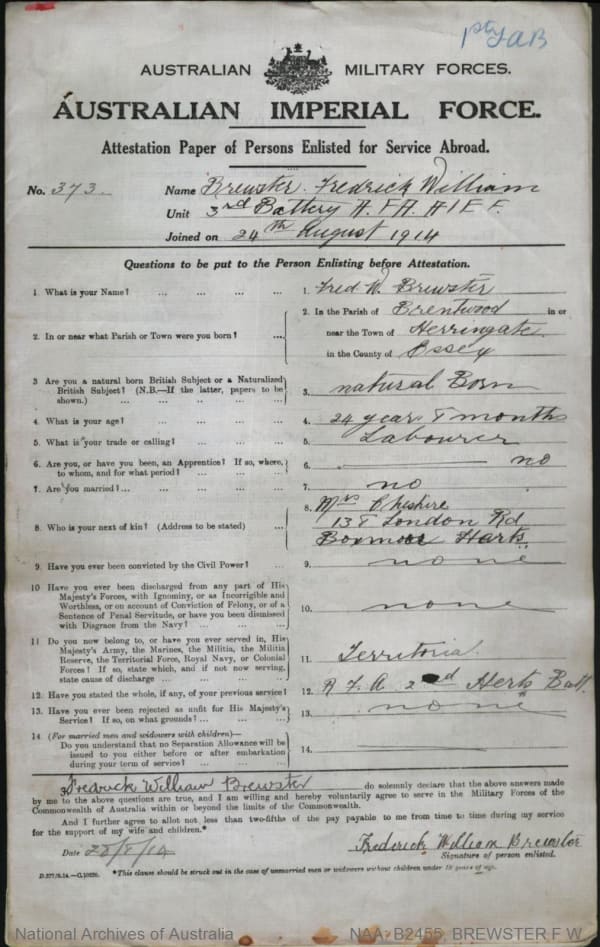 AUSTRALIAN MILITARY FORCES.
AUSTRALIAN IMPERIAL FORCE.
Attestation Paper of Persons Enlisted for Service Abroad.
No. 373. Name Brewster. Fredrick William
Unit 3rd Battery A.F.A. A I F.
Joined on 24th August 1914
Questions to be put to the Person Enlisting before Attestation.
1. What is your Name? ... ... ... 1. Fred W. Brewster
2. In or near what Parish or Town were you born? ... 2. In the Parish of Brentwood in or
near the Town of Herringate
in the County of Essex
3 Are you a natural born British Subject or a Naturalized
British Subject? (N.B.—If the latter, papers to be
shown.) ... ... ... ... 3. natural Born
4. What is your age? ... ... ... 4. 24 year 8 months
5. What is your trade or calling? ... ... ... 5. Labourer
6. Are you, or have you been, an Apprentice? If so, where,
to whom, and for what period? ... ... ... 6. no
7. Are you married? ... ... ... ... 7. no
8. Who is your next of kin? (Address to be stated) ... 8. Mrs Cheshire
138 London Rd
Boxmoor Herts
9. Have you ever been convicted by the Civil Power? ... 9. none
10 Have you ever been discharged from any part of His
Majesty's Forces, with Ignominy, or as Incorrigible and
Worthless, or on account of Conviction of Felony, or of a
Sentence of Penal Servitude, or have you been dismissed
with Disgrace from the Navy? ... ... ... 10. none
11 Do you now belong to, or have you ever served in, His
Majesty's Army, the Marines, the Militia, the Militia
Reserve, the Territorial Force, Royal Navy, or Colonial
Forces? If so, state which, and if not now serving,
state cause of discharge ... ... ... ... 11. Territorial
12. Have you stated the whole, if any, of your previous service? 12. R F A 2nd Herts Batt.
13. Have you ever been rejected as unfit for His Majesty's
Service? If so, on what grounds? ... ... ... 13. none
14 (For married men and widowers with children)—
Do you understand that no Separation Allowance will be
issued to you either before or after embarkation
during your term of service? ... ... ... 14.
I, Fredrick William Brewster do solemnly declare that the above answers made
by me to the above questions are true, and I am willing and hereby voluntarily agree to serve in the Military Forces of the
Commonwealth of Australia within or beyond the limits of the Commonwealth.
And I further agree to allot not less than two-fifths of the pay payable to me from time to time during my service
for the support of my wife and children.*
Date 28/8/14 Frederick William Brewster
Signature of person enlisted.
*This clause should be struck out in the case of unmarried men or widowers without children under 18 years of age.
National Archives of Australia NAA: B2455, BREWSTER F W